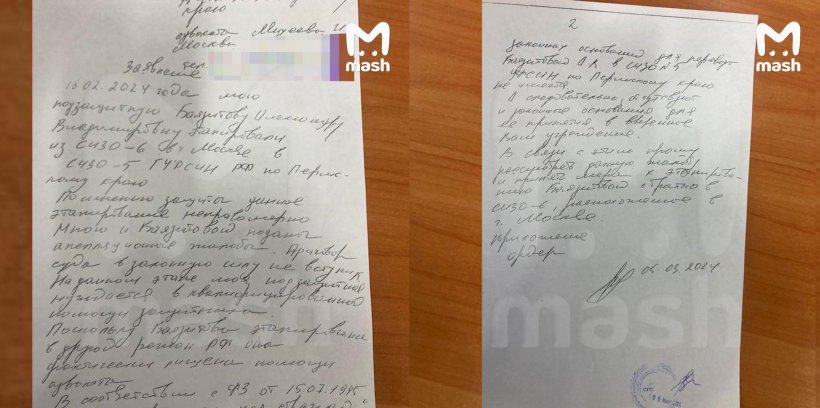 краю
адвоката Михеева И
Москвы
тел.
Заявление
10.02.2024 года мою
подзащитную Баязитову Александру
Владимировну этапировали
из СИЗО-6 г. Москве в
СИЗО-5 ГУФСИН РФ по Пермс-
кому краю
По мнению защиты данное
этапирование неправомерно
Мною и Баязитовой поданы
апелляционные жалобы. Приговор
суда в законную силу не вступил
На данном этапе моя подзащитная
нуждается в квалифицированной
помощи защитника.
Поскольку Баязитова этапирована
в другой регион РФ она
фактически лишена помощи
адвоката
В соответствии с ФЗ от 15.07.1995
mash
2
законных оснований для перевода
Баязитовой А.В. в СИЗО №5
ФСИН по Пермскому краю
не имеется.
А следовательно, отсутствуют
и законные основания для
ее принятия в вверенное
Вам учреждение.
В связи с этим прошу
рассмотреть данную жалобу
и принять меры к этапирова-
нию Баязитовой обратно в
СИЗО-6, расположенное в
г. Москве.
приложение
ордер
05.03.2024
mash
mash